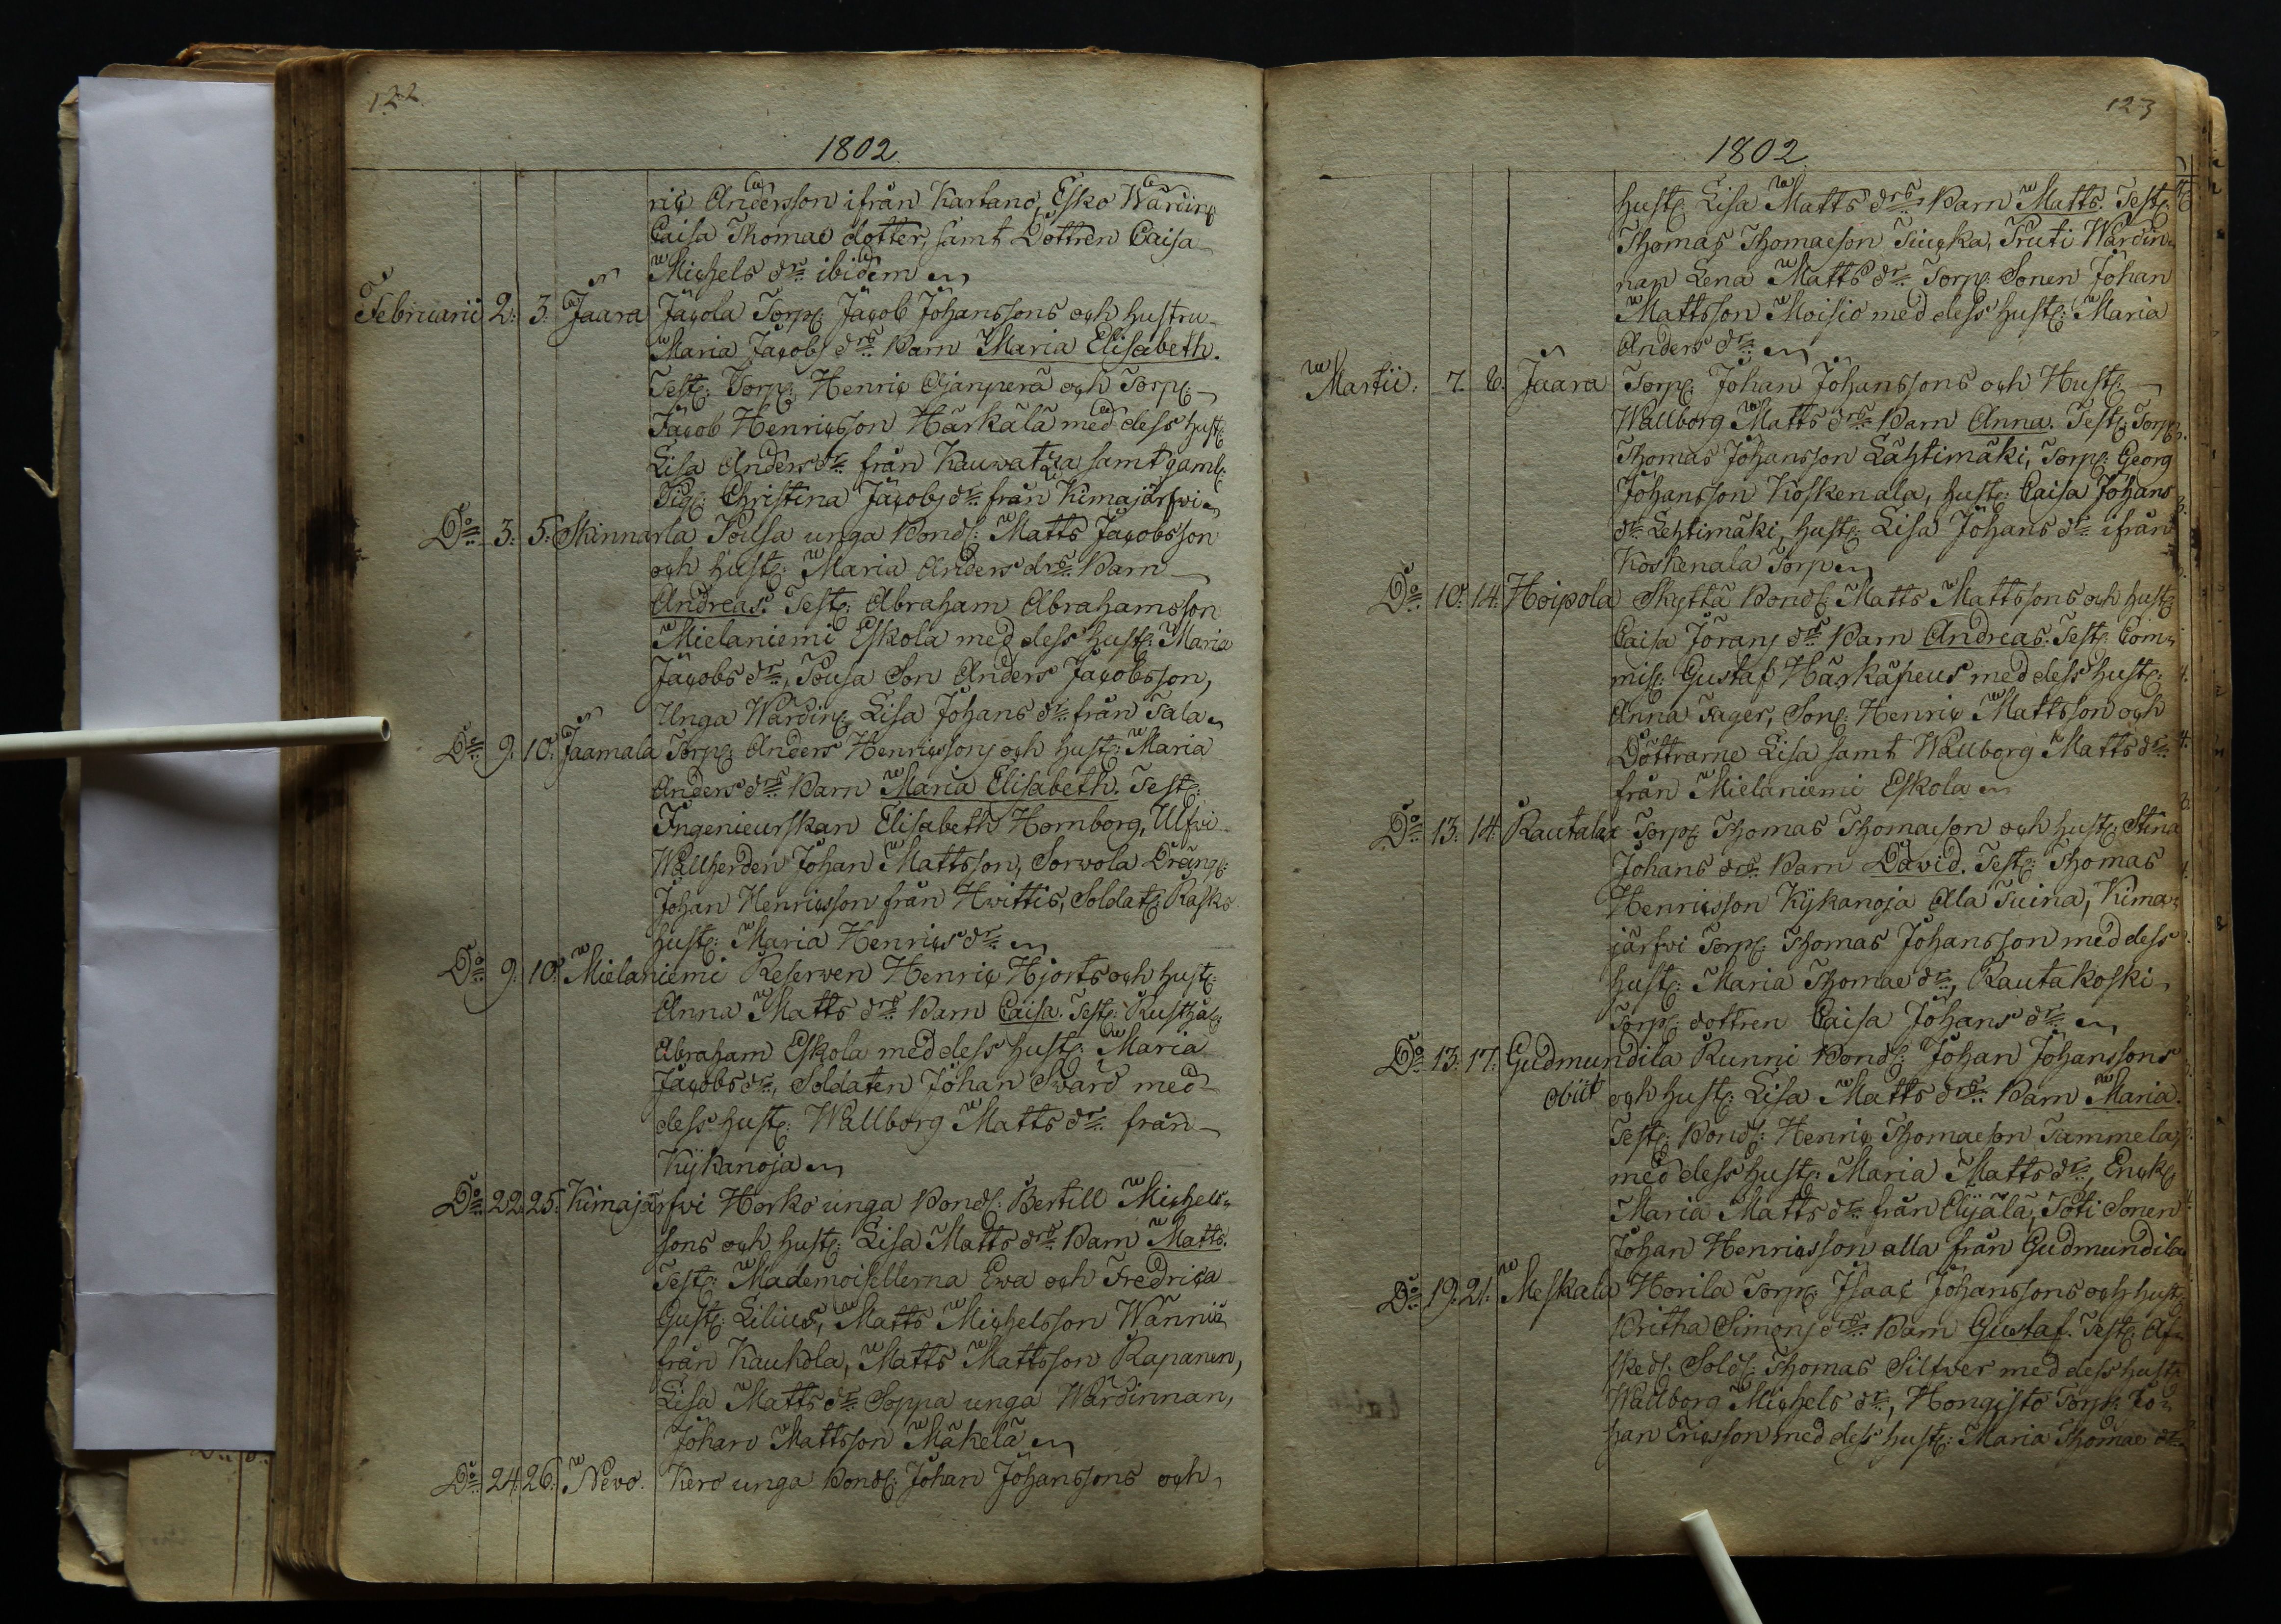 122.
1802.
ric Andersson ifrån Kartano, Esko Wärdin:
Caisa Thomae dotter, samt Dottren Caisa
Michels dr. ibidem
Februarii 2. 3. Jaara Jacola Torp: Jacob Johanssons och hustru
Maria Jacobs drs. Barn Maria Elisabeth.
Test: Torp: Henric Ajanperä och Torp:
Jacob Henricsson Härkälä med dess hust:
Lisa Anders dr. från Kauvatza samt gaml:
Pig: Christina Jacobs dr. från Kimajärfvi
Do. 3. 5. Skinnarla Pousa unga Bond: Matts Jacobsson
och hust: Maria Anders drs. Barn
Andreas. Test: Abraham Abrahamsson
Mielaniemi Eskola med dess hust: Maria
Jacobs dr., Pousa Son Anders Jacobsson,
Unga Wärdin: Lisa Johans dr. från Tala
Do. 9. 10. Jaamala Torp: Anders Henricssons och hust: Maria
Anders drs. Barn Maria Elisabeth. Test:
Ingenieurskan Elisabeth Hornborg, Ulfvi
Wallherden Johan Mattsson, Sorvola Dräng:
Johan Henricsson från Hvittis, Soldat: Rasks
hust: Maria Henrics dr.
Do. 9. 10. Mielaniemi Reserven Henric Hjorts och hust:
Anna Matts drs. Barn Caisa. Test: Rusthål:
Abraham Eskola med dess hust: Maria
Jacobs dr., Soldaten Johan Svärd med
dess hust: Wallborg Matts dr. från
Kykanoja
Do. 22. 25. Kimajärfvi Horko unga Bond: Bertill Michels
sons och hust: Lisa Matts drs. Barn Matts.
Test: Mademoisellerna Ewa och Fredrica
Gust: Lilius, Matts Michelsson Wännis
från Kaukola, Matts Mattsson Rapanen,
Lisa Matts dr. Soppa unga Wärdinnan,
Johan Mattsson Mäkelä
Do. 24. 26. Nevo. Kero unga Bond: Johan Johanssons och
123
1802.
hust: Lisa Matts drs. Barn Matts. Test:
Thomas Thomaeson Tiucka, Pruti Wärdin
nan Lena Matts dr. Torp: Sonen Johan
Mattsson Moisio med dess hust: Maria
Anders dr.
Martii. 7. 8. Jaara Torp: Johan Johanssons och Hust:
Wallborg Matts drs. Barn Anna. Test: Torp:
Thomas Johansson Lähtimäki, Torp: Georg
Johansson Koskenala, hust: Caisa Johans
dr. Lehtimäki, hust: Lisa Johans dr. ifrån
Koskenala Torp
Do. 10. 14. Hoipola Skyttä Bond: Matts Mattssons och hust:
Caisa Jörans drs. Barn Andreas. Test: Com
mis: Gustaf Härkäpeus med dess hust:
Anna Fager, Son: Henric Mattsson och
Döttrarne Lisa samt Wallborg Matts dr.
från Mielaniemi Eskola
Do. 13. 14. Rautala Torp: Thomas Thomaeson och hust: Stina
Johans drs. Barn David. Test: Thomas
Henricsson Kykanoja Ala Tuina, Kima
järfvi Torp: Thomas Johansson med dess
hust: Maria Thomae dr., Rautakoski
Torp: dottren Caisa Johans dr.
Do. 13. 17. Gudmundila Runni Bond: Johan Johanssons
obiit och hust: Lisa Matts drs. Barn Maria.
Test: Bond: Henric Thomaeson Tammela
med dess hust: Maria Matts dr., Enck:
Maria Matts dr. från Elijälä, Töti Sonen
Johan Henricsson alla från Gudmundila
Do. 19. 21. Meskala Honila Torp: Isaac Johanssons och hust:
Britha Simons drs. Barn Gustaf. Test: Af
sked: Sold: Thomas Silfver med dess hust:
Wallborg Michels dr., Hongisto Torp: Jo
han Ericsson med dess hust: Maria Thomae dr.